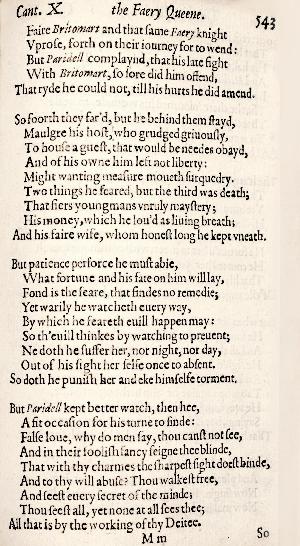 Cant. X. the Faery Queene. 543
Faire Britomart and that same Faery knight
Vprose, forth on their iourney for to wend:
But Paridell complaynd, that his late fight
With Britomart, so sore did him offend,
That ryde he could not, till his hurts he did amend.
So foorth they far'd, but he behind them stayd,
Maulgre his host, who grudged griuously,
To house a guest, that would be needes obayd,
And of his owne him left not liberty:
Might wanting measure moueth surquedry.
Two things he feared, but the third was death;
That fiers youngmans vnruly maystery;
His money, which he lou'd as liuing breath;
And his faire wife, whom honest long he kept vneath.
But patience perforce he must abie,
What fortune and his fate on him will lay,
Fond is the feare, that findes no remedie;
Yet warily he watcheth euery way,
By which he feareth euill happen may:
So th'euill thinkes by watching to preuent;
Ne doth he suffer her, nor night, nor day,
Out of his sight her selfe once to absent.
So doth he punish her and eke himselfe torment.
But Paridell kept better watch, then hee,
A fit occasion for his turne to finde:
False loue, why do men say, thou canst not see,
And in their foolish fancy feigne thee blinde,
That with thy charmes the sharpest sight doest binde,
And to thy will abuse? Thou walkest free,
And seest euery secret of the minde;
Thou seest all, yet none at all sees thee;
All that is by the working of thy Deitee.
M m So